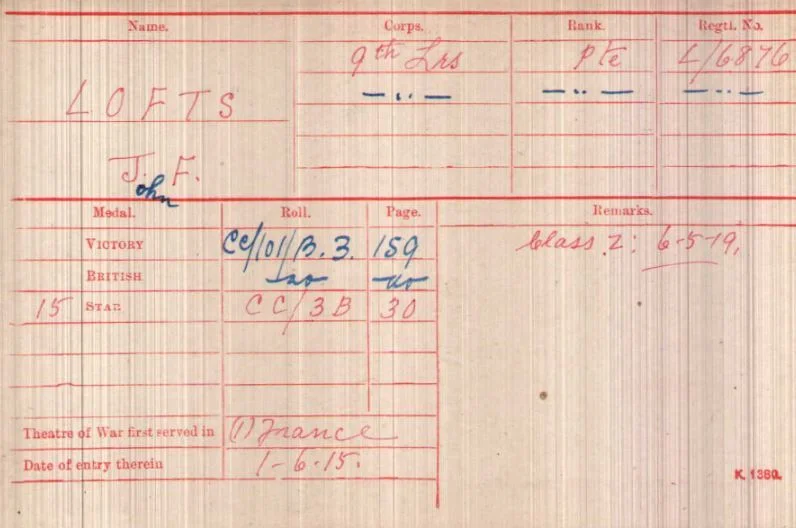 Name. Corps. Rank. Regtl. No.
9th Lrs Pte L/6876
LOFTS — „ — — „ — — „ —
J. F.
ohn
Medal. Roll. Page. Remarks.
VICTORY CC/101/B.3. 159 Class Z: 6-5-19.
BRITISH do do
15 STAR CC/3B 30
Theatre of War first served in (1) France
Date of entry therein 1-6-15.
K. 1380.